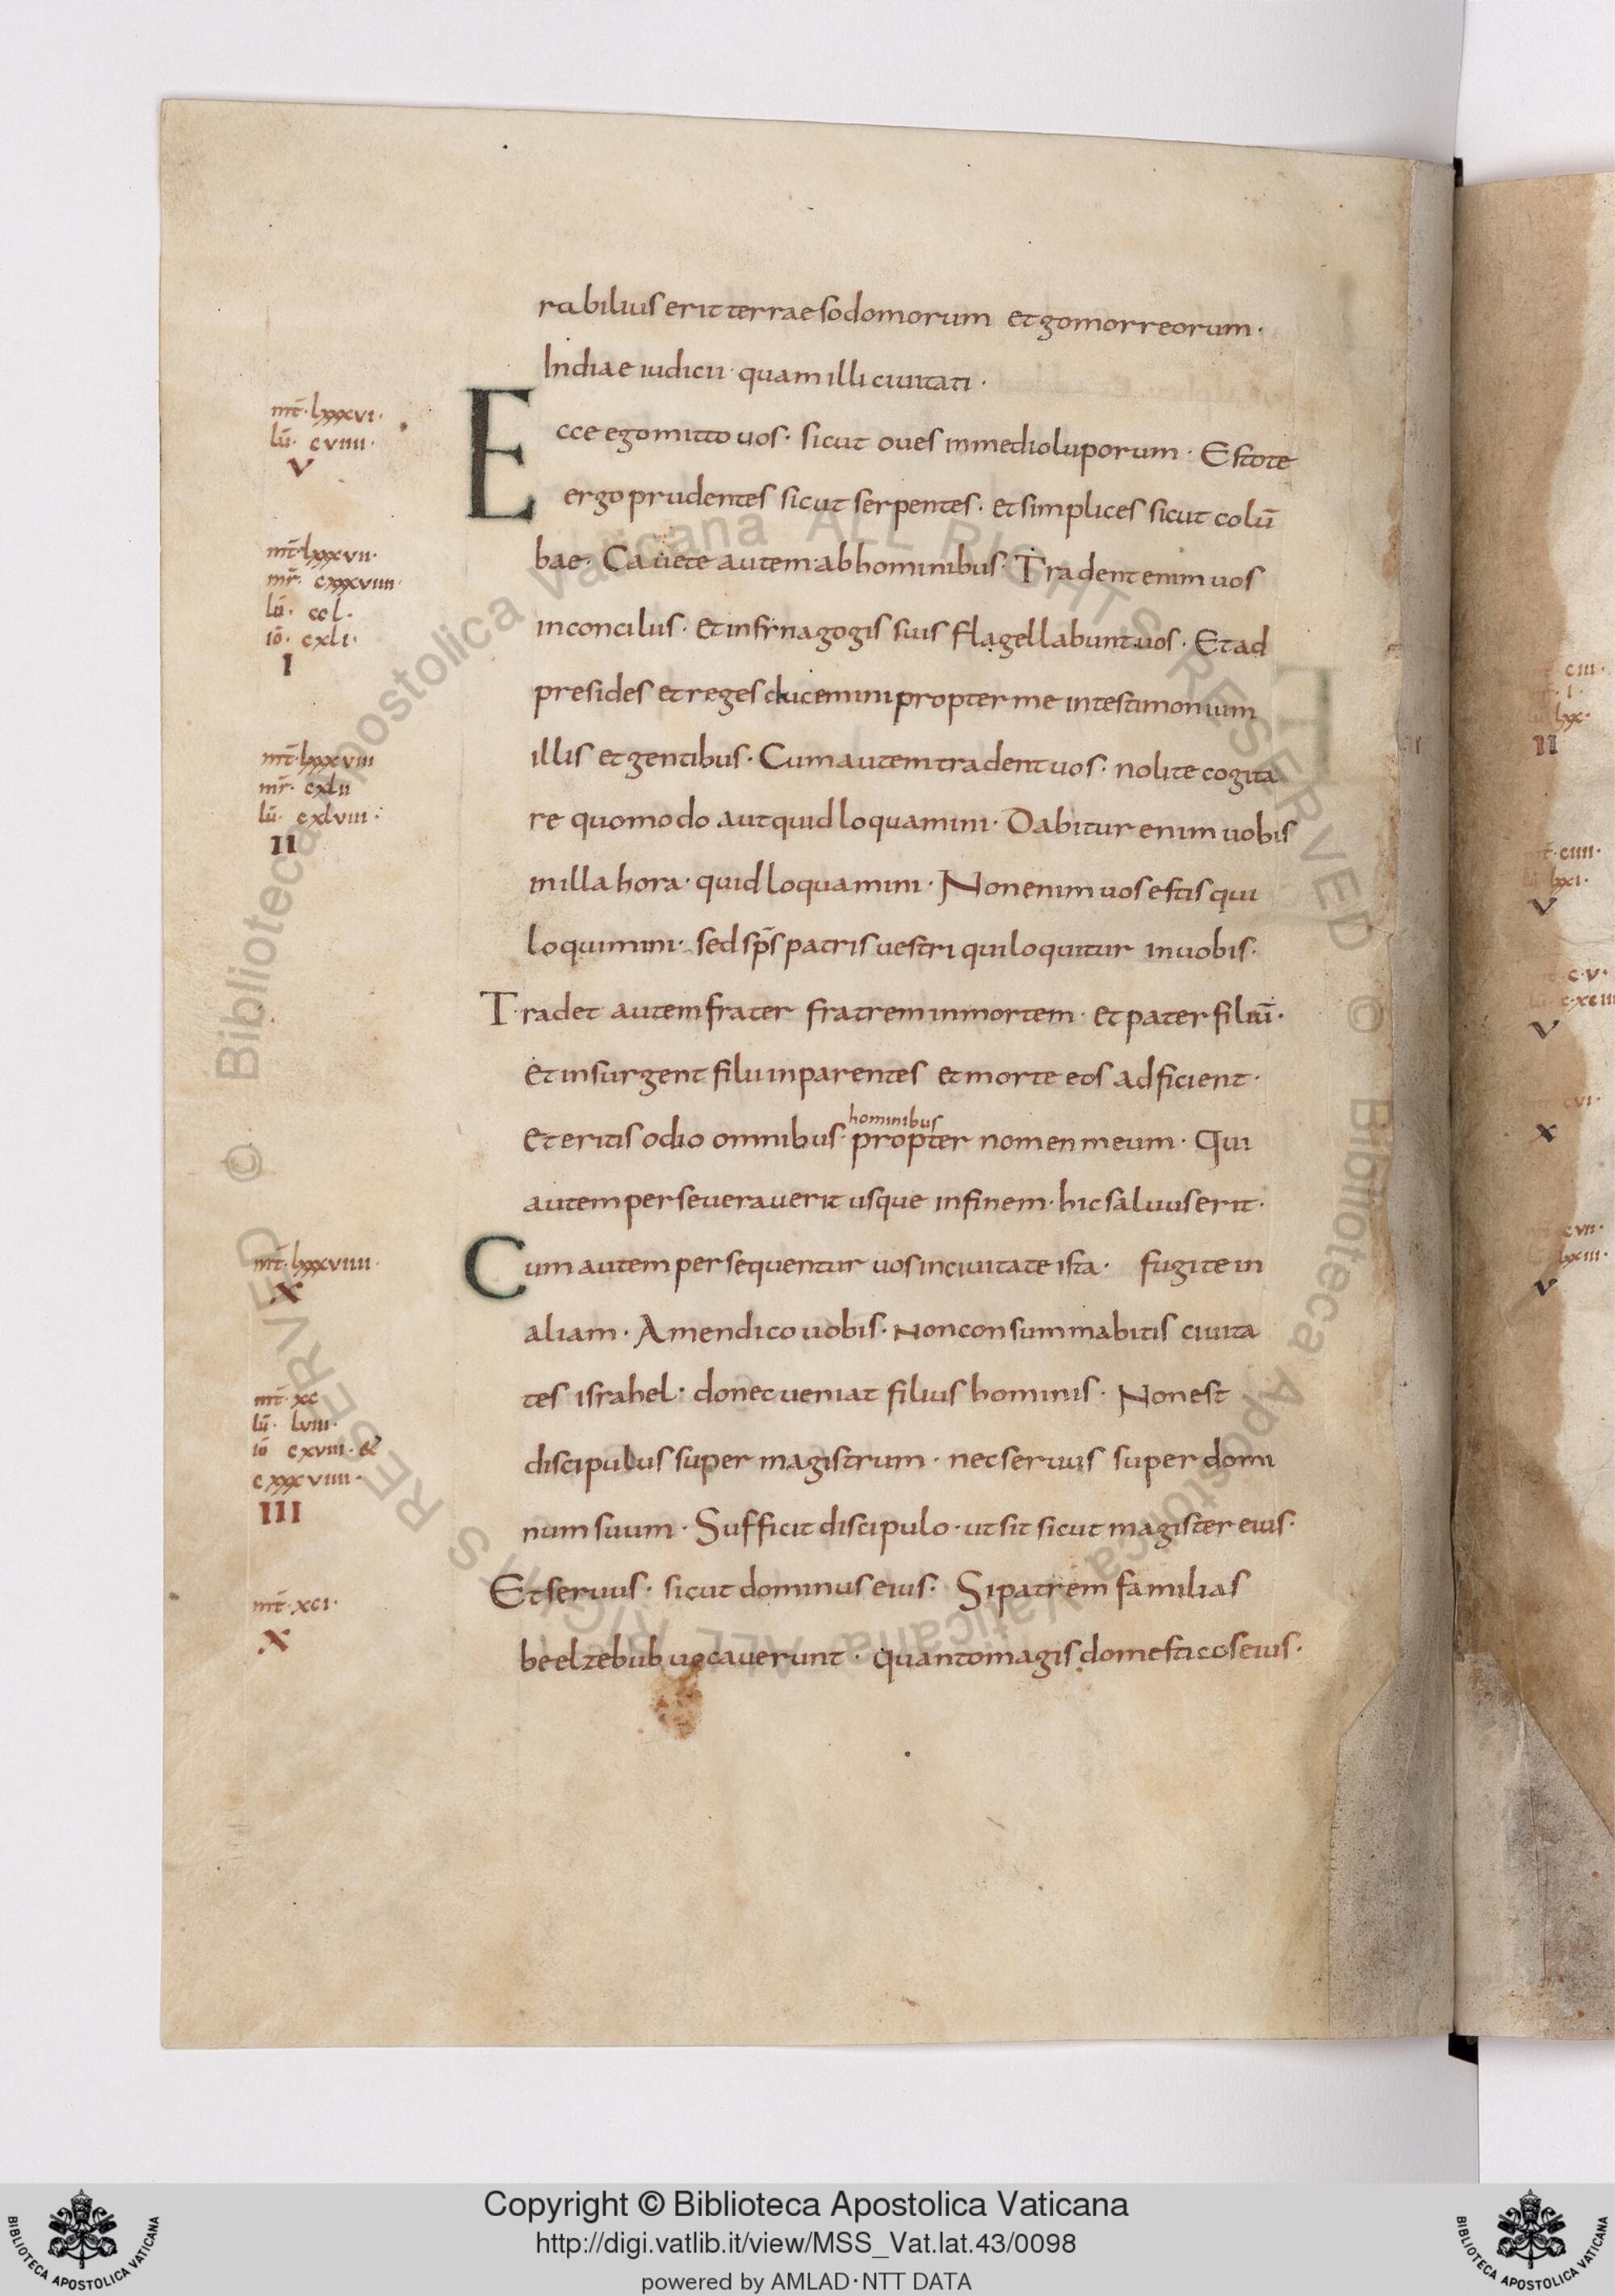 rabilius erit terrae sodomorum et gomorreorum·
In diae iudicii· quam illi ciuitati·
Ecce ego mitto uos· sicut oues in medio luporum· Estote
ergo prudentes sicut serpentes· et simplices sicut colū
bae· Cauete autem ab hominibus· Tradent enim uos
in conciliis· et in synagogis suis flagellabunt uos· Et ad
presides et reges ducemini propter me in testimonium
illis et gentibus· Cum autem tradent uos· nolite cogita
re quomodo aut quid loquamini· Dabitur enim uobis
in illa hora· quid loquamini· Non enim uos estis qui
loquimini· sed sp̄s patris uestri qui loquitur in uobis·
Tradet autem frater fratrem in mortem· et pater filiū·
et insurgent filii in parentes et morte eos adficient·
hominibus
et eritis odio omnibus· propter nomen meum· Qui
autem perseuerauerit usque in finem· hic saluus erit·
Cum autem persequentur uos in ciuitate ista· fugite in
aliam· Amen dico uobis· Non consummabitis ciuita
tes israhel· donec ueniat filius hominis· Non est
discipulus super magistrum· nec seruus super domi
num suum· Sufficit discipulo· ut sit sicut magister eius·
Et seruus· sicut dominus eius· Si patrem familias
beelzebub uocauerunt· quanto magis domesticos eius·
mt̄· lxxxvi·
lū· cviiii·
V
mt̄· lxxxvii·
mr̄· cxxxviiii·
lū· ccl·
iō· cxli·
I
mt̄· lxxxviii
mr̄· cxlii
lū· cxlviii·
II
mt̄· lxxxviiii·
X
mt̄· xc
lū· lviii·
iō cxviii· &
cxxxviiii·
III
mt̄· xci·
X
ciii·
i·
lxx·
II
mt̄· ciiii·
lxxi·
V
c·v·
V
cvi·
X
cvii·
V
© Biblioteca Apostolica Vaticana ALL RIGHTS RESERVED © Biblioteca Apostolica Vaticana ALL RIGHTS RESERVED
Copyright © Biblioteca Apostolica Vaticana
http://digi.vatlib.it/view/MSS_Vat.lat.43/0098
powered by AMLAD·NTT DATA
BIBLIOTECA APOSTOLICA VATICANA
BIBLIOTECA APOSTOLICA VATICANA